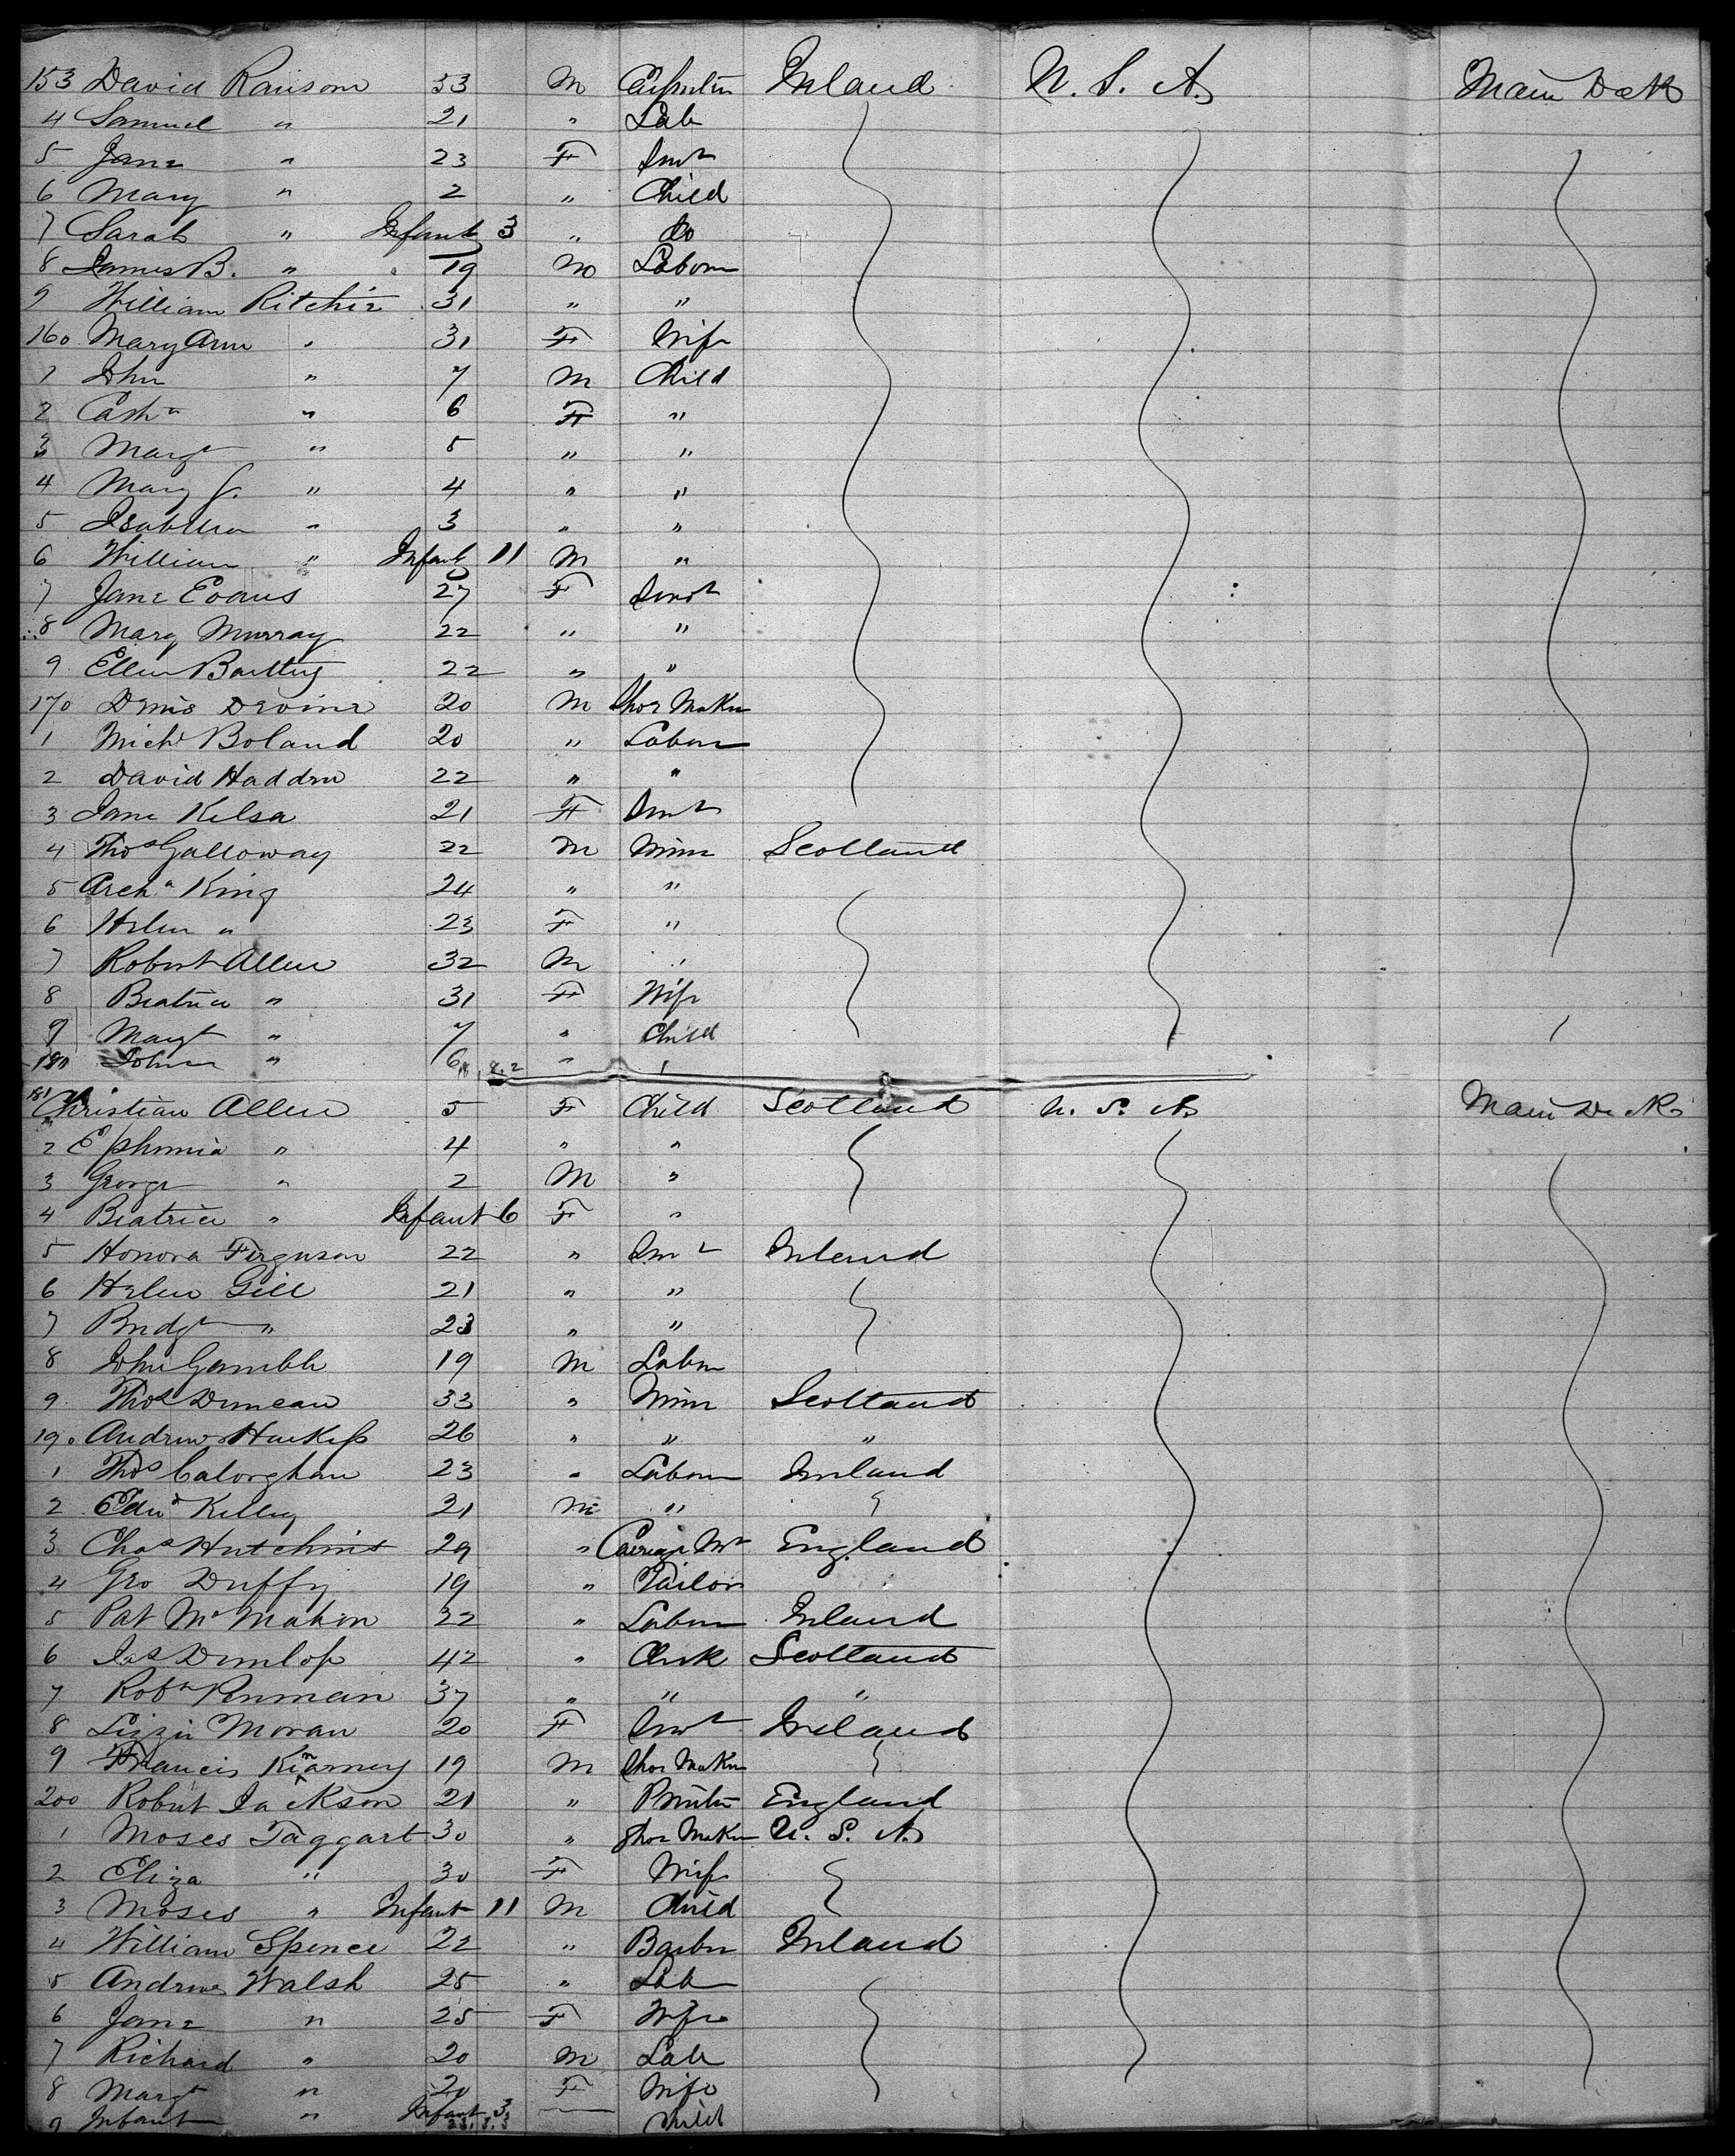 153 David Ranson 53 M Carpenter Ireland U. S. A. Main Deck
4 Samuel " 21 " Lab
5 Jane " 23 F Servt
6 Mary " 2 " Child
7 Sarah " Infant 3 " Do
8 James B. " 19 M Labour
9 William Ritchie 31 " "
160 Mary Ann " 31 F Wife
1 John " 7 M Child
2 Cathe " 6 F "
3 Margt " 5 " "
4 Mary J. " 4 " "
5 Isabella " 3 " "
6 William " Infant 11 M "
7 Jane Evans 27 F Servt
8 Mary Murray 22 " "
9 Ellen 22 " "
170 Denis Devine 20 M Shoe Maker
1 Michl Boland 20 " Labour
2 David Hadden 22 " "
3 Jane Kelsa 21 F Servt
4 Thos Galloway 22 M Miner Scotland
5 Archd King 24 " "
6 Helen " 23 F "
7 Robert Allen 32 M "
8 Beatrice " 31 F Wife
9 Margt " 7 " Child
180 " 6 "
181 Christian Allen 5 F Child Scotland U. S. A. Main Deck
2 Ephemia " 4 " "
3 George " 2 M "
4 Beatrice " Infant 6 F "
5 Honora Ferguson 22 " Servt Ireland
6 Helen Gill 21 " "
7 Bridgt " 23 " "
8 John Gamble 19 M Labour
9 Thos Duncan 33 " Miner Scotland
190 Andrew 26 " " "
1 Thos Calorghan 23 " Labour Ireland
2 Edwd Kelley 21 M "
3 Chas Hutchins 29 " Carriage Mr England
4 Geo Duffy 19 " Tailor
5 Pat McMahon 22 " Labour Ireland
6 Jas Dunlop 42 " Clerk Scotland
7 Robt Penman 37 " " "
8 Lizzie Moran 20 F Servt Ireland
9 Francis 19 M Shoe Maker
200 Robert Jackson 21 " Printer England
1 Moses Taggart 30 " Shoe Maker U. S. A.
2 Eliza " 30 F Wife
3 Moses " Infant 11 M Child
4 William Spence 22 " Barber Ireland
5 Andrew Walsh 25 " Lab
6 Jane " 25 F Wife
7 Richard " 20 M Lab
8 Margt " 20 F Wife
9 Infant " Infant 3 Child